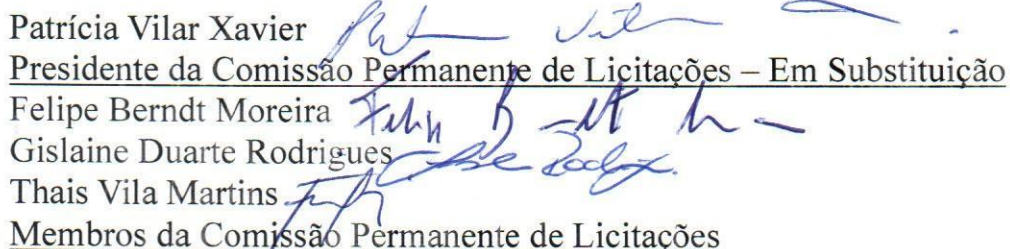 Patrícia Vilar Xavier
Presidente da Comissão Permanente de Licitações – Em Substituição
Felipe Berndt Moreira
Gislaine Duarte Rodrigues
Thais Vila Martins
Membros da Comissão Permanente de Licitações